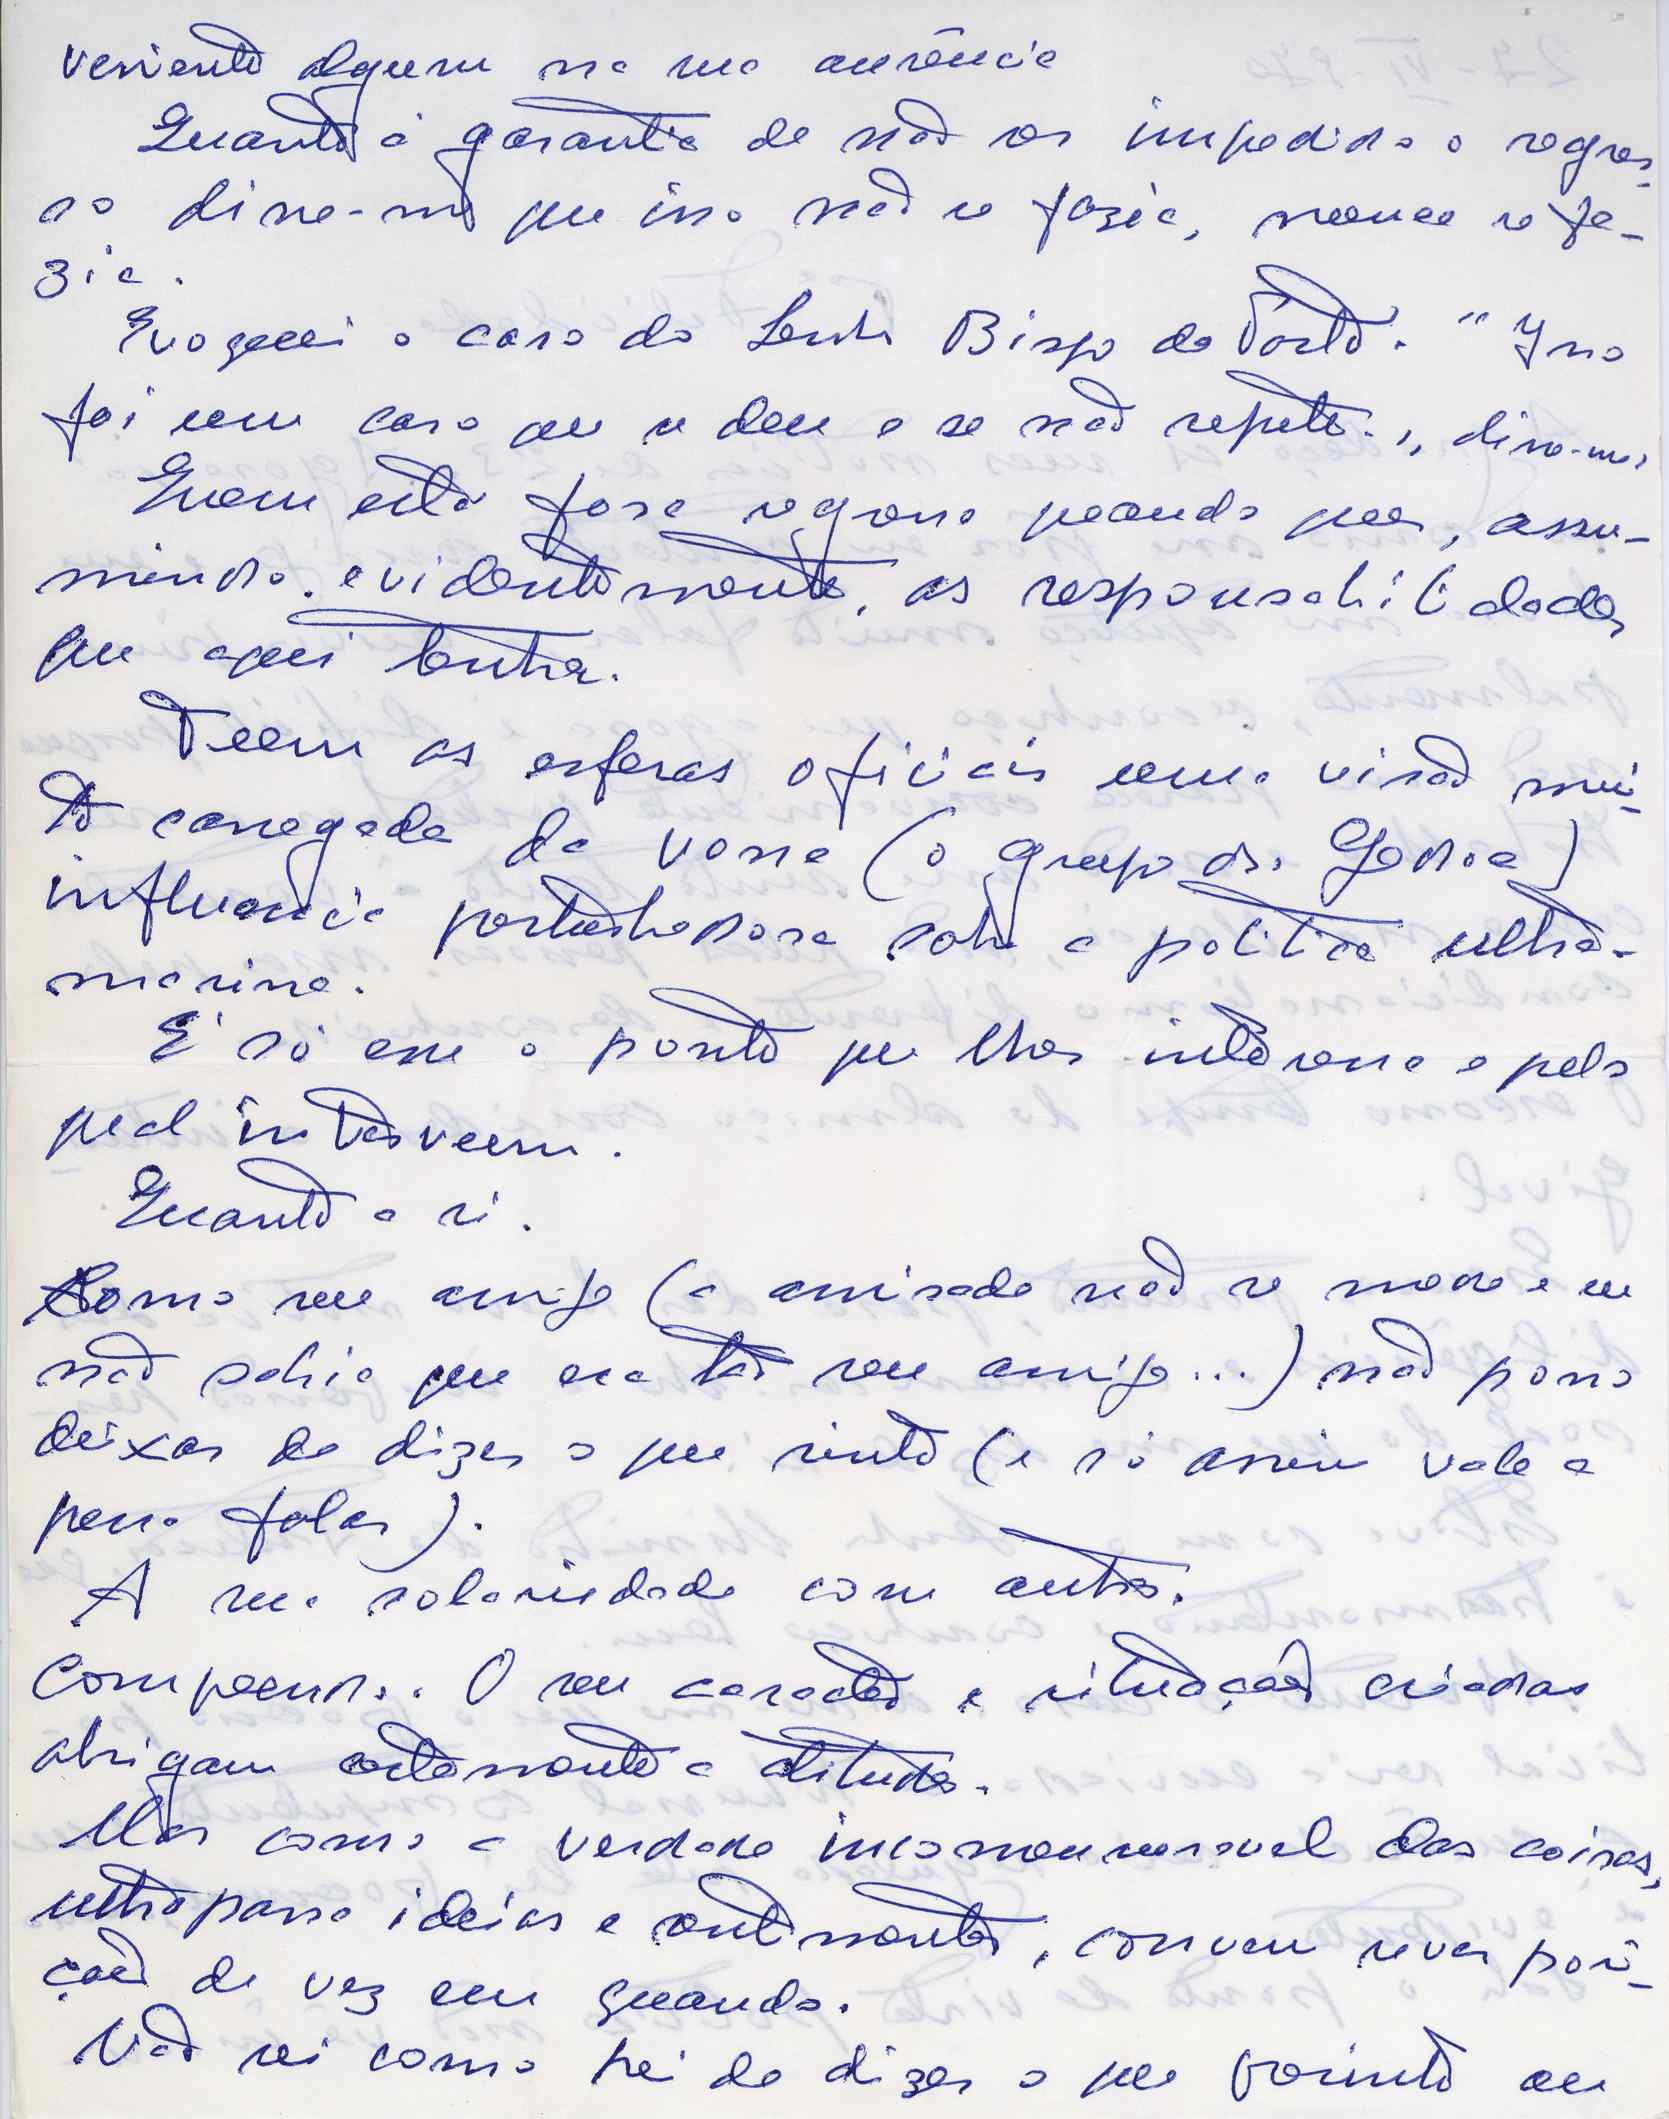 veniente algum na sua ausência
Quanto à garantia de não ser impedido o regres-
so disse-me que isso não se fazia, nunca se fa-
zia.
Evoquei o caso do Senhor Bispo do Porto. "Isso
foi um caso que se deu e se não repete", disse-me
Quem está fora regressa quando quer, assu-
mindo, evidentemente, as responsabilidades
que aqui tenha.
Teem as esferas oficiais uma visão mui-
to carregada da vossa (o grupo da
influencia sobre a politica ultra-
marina.
É só esse o ponto que lhes interessa e pelo
qual interveem.
Quanto a si.
Como seu amigo (a amisade não se mede e eu
não sabia que era tão seu amigo...) não posso
deixar de dizer o que sinto (e só assim vale a
pena falar).
A sua solariedade com outros.
Compreendo. O seu caracter e situação criadas
obrigam certamente a atitudes.
Mas como a verdade incomensuravel das coisas,
ultrapassa ideias e sentimentos, convem rever posi-
ção de vez em quando.
Não sei como hei de dizer o que sinto ou